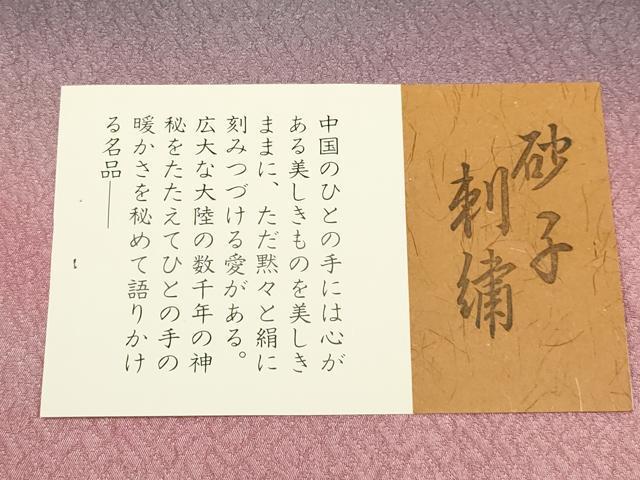 砂子
刺繍
中国のひとの手には心が
ある美しきものを美しき
ままに、ただ黙々と絹に
刻みつづける愛がある。
広大な大陸の数千年の神
秘をたたえてひとの手の
暖かさを秘めて語りかけ
る名品——